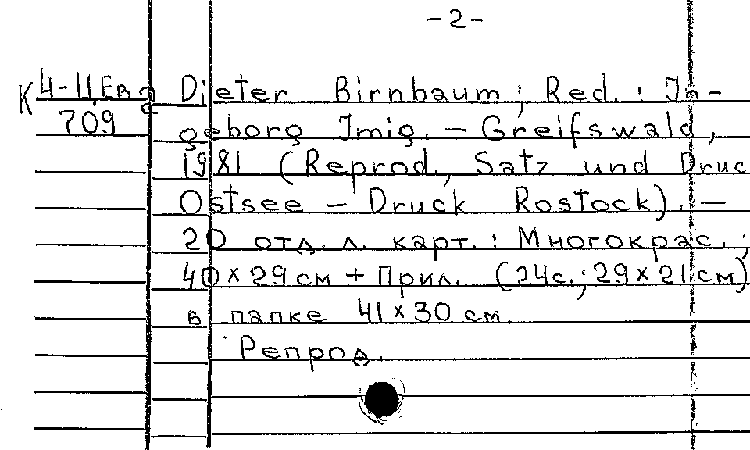 -2-
К 4-11 Ев Dieter Birnbaum; Red.: In-
709 geborg Imig. - Greifswald,
1981 (Reprod., Satz und Druc
Ostsee - Druck Rostock). -
20 отд. л. карт.: Многокрас.;
40×29 см + Прил. (24с.; 29×21 см)
в папке 41×30 см.
Репрод.